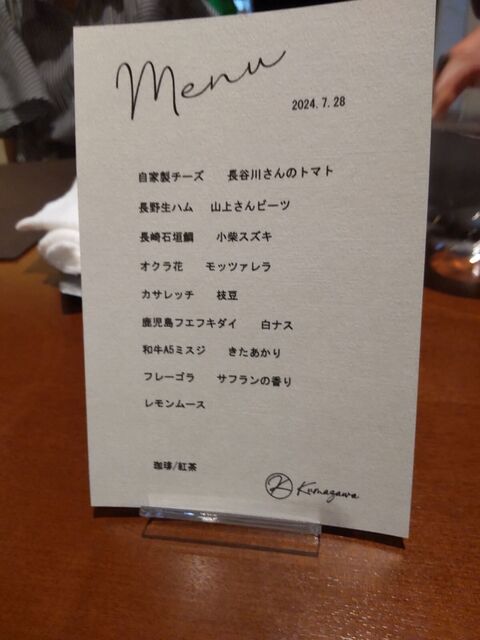 Menu
2024.7.28
自家製チーズ 長谷川さんのトマト
長野生ハム 山上さんビーツ
長崎石垣鯛 小柴スズキ
オクラ花 モッツァレラ
カサレッチ 枝豆
鹿児島フエフキダイ 白ナス
和牛A5ミスジ きたあかり
フレーゴラ サフランの香り
レモンムース
珈琲/紅茶
K Kumagawa